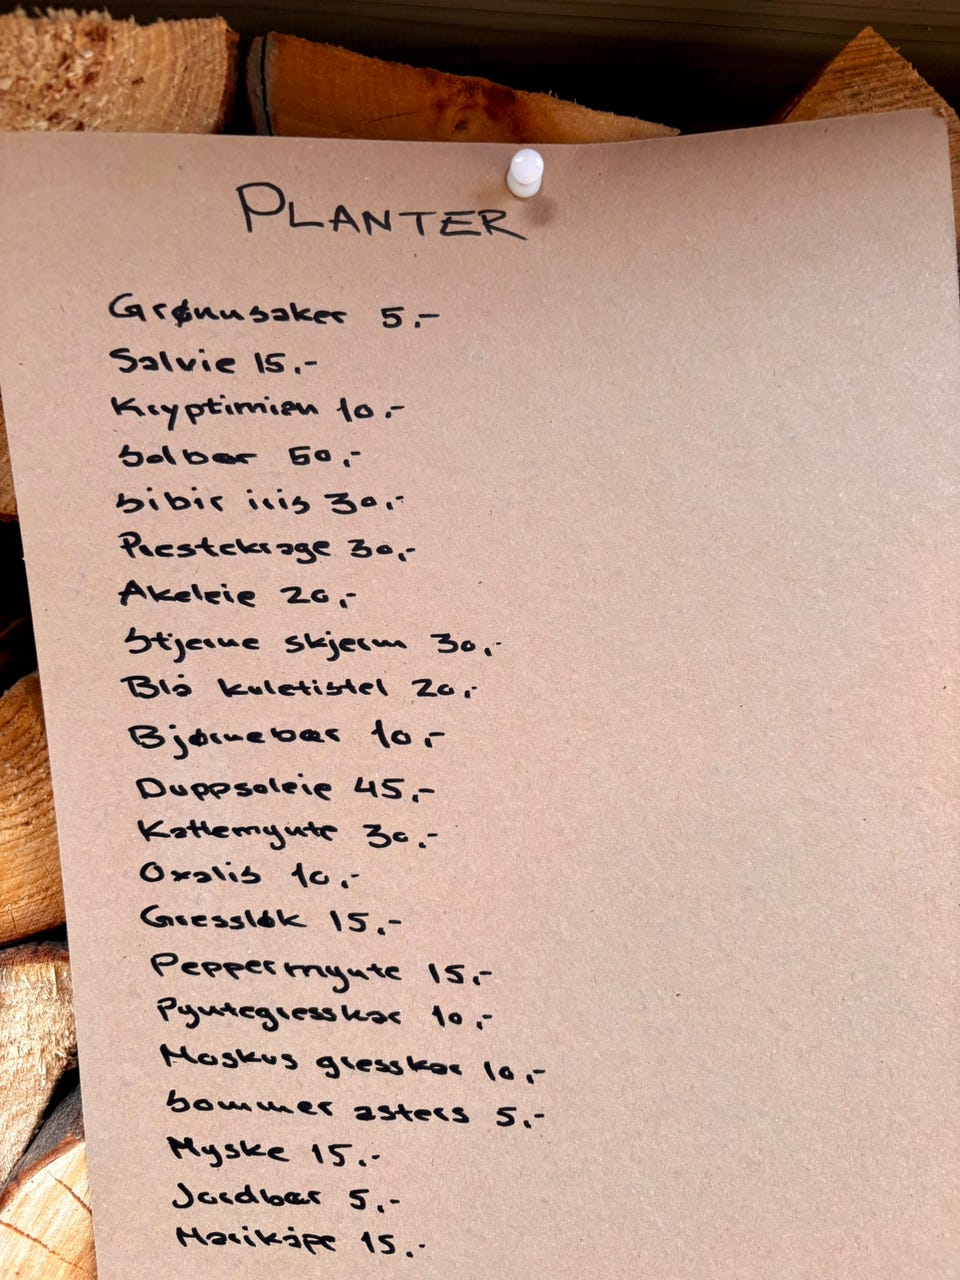 PLANTER
Grønnsaker 5,-
Salvie 15,-
Kryptimian 10,-
Solbær 50,-
Sibir iris 30,-
Prestekrage 30,-
Akeleie 20,-
Stjerne skjerm 30,-
Blå kuletistel 20,-
Bjørnebær 10,-
Duppsoleie 45,-
Kattemynte 30,-
Oxalis 10,-
Gressløk 15,-
Peppermynte 15,-
Pyntegresskar 10,-
Moskus gresskar 10,-
Sommer asters 5,-
Myske 15,-
Jordbær 5,-
Marikåpe 15,-